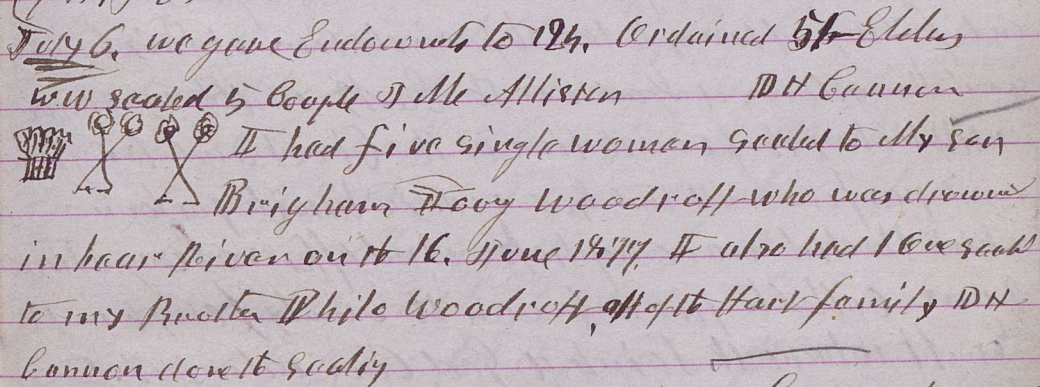 July 6. we gave Endowmts to 124. Ordained 54 Elders
W W sealed 5 Couple J Mc Allister D H Cannon
I had five single women sealed to My son
Brigham Young Woodruff who was drownd
in bear River on the 16. June 1877. I also had 1 One seald
to my Brother Philo Woodruff, all of the Hart family D H
Cannon done the Sealing